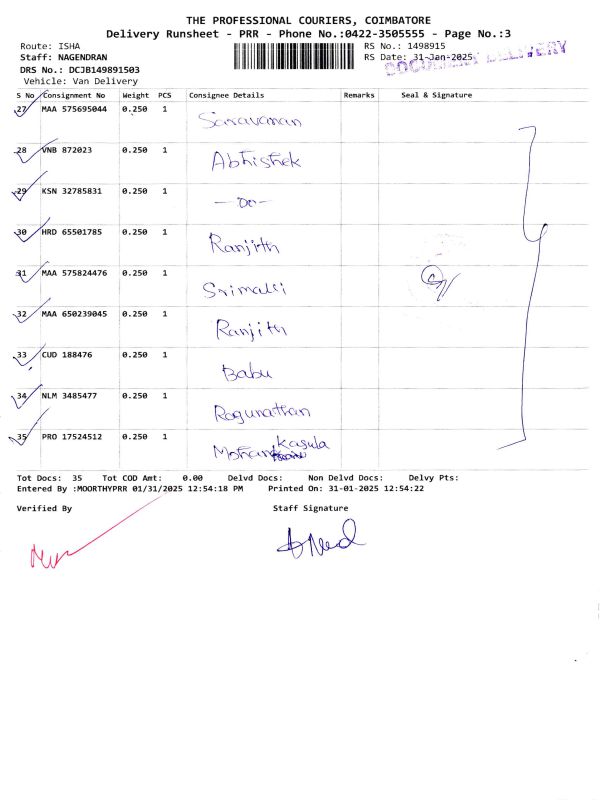 THE PROFESSIONAL COURIERS, COIMBATORE
Delivery Runsheet - PRR - Phone No.:0422-3505555 - Page No.:3
Route: ISHA RS No.: 1498915
Staff: NAGENDRAN RS Date: 31-Jan-2025
DOCUMENT DELIVERY
DRS No.: DCJB149891503
Vehicle: Van Delivery
S No Consignment No Weight PCS Consignee Details Remarks Seal & Signature
27 MAA 575695044 0.250 1
Saravanan
28 VNB 872023 0.250 1
Abhishek
29 KSN 32785831 0.250 1
- Do -
30 HRD 65501785 0.250 1
Ranjith
31 MAA 575824476 0.250 1
32 MAA 650239045 0.250 1
Ranjith
33 CUD 188476 0.250 1
Babu
34 NLM 3485477 0.250 1
Ragunathan
35 PRO 17524512 0.250 1
Mohan Kasula
Tot Docs: 35 Tot COD Amt: 0.00 Delvd Docs: Non Delvd Docs: Delvy Pts:
Entered By :MOORTHYPRR 01/31/2025 12:54:18 PM Printed On: 31-01-2025 12:54:22
Verified By Staff Signature